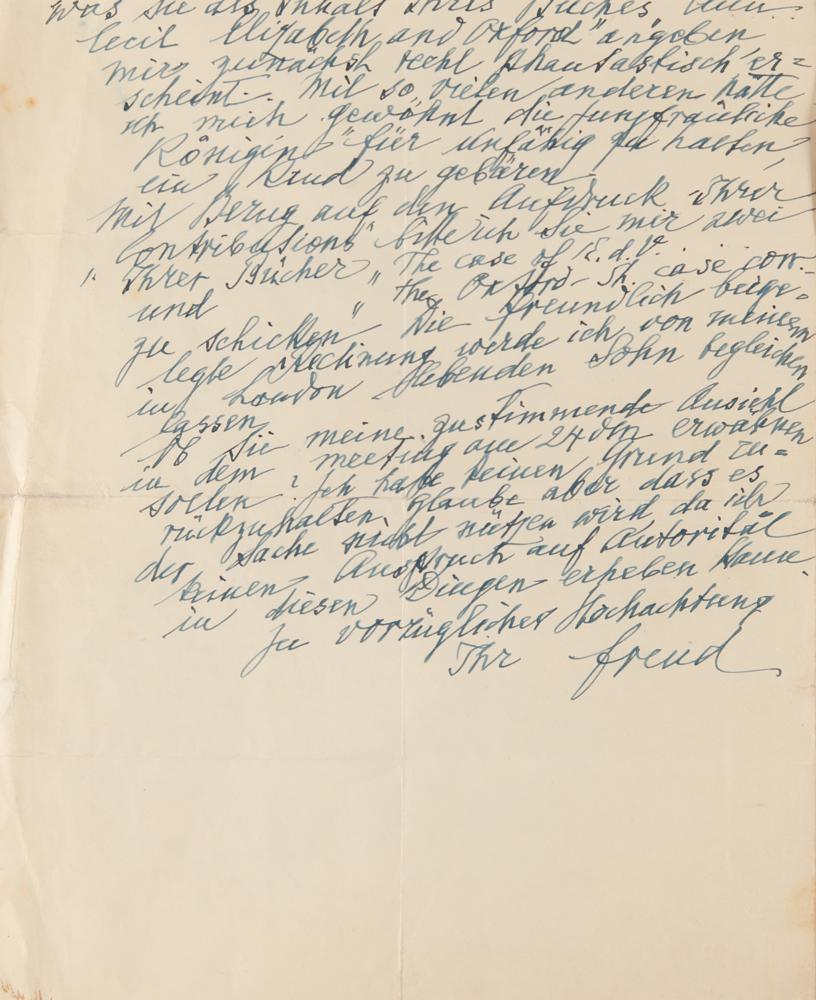 was Sie als Inhalt Ihres Buches
Cecil Elizabeth and Oxford" angeben
mir zunächst recht phantastisch er=
scheint. Mit so vielen anderen hatte
ich mich gewöhnt die jungfräuliche
Königin" für unfähig zu halten,
ein Kind zu gebären.
Mit Bezug auf den Aufdruck Ihrer
Contributions" bitte ich Sie mir zwei
Ihrer Bücher „The case of E. d. V.
und „the Oxford-Sh. case corr.
zu schicken. Die freundlich beige=
legte Rechnung werde ich von meinem
in London lebenden Sohn begleichen
lassen.
Ob Sie meine zustimmende Ansicht
in dem meeting am 24 dM erwähnen
sollen? Ich habe keinen Grund zu=
rückzuhalten, glaube aber dass es
der Sache nicht nützen wird da ich
keinen Anspruch auf Autorität
in diesen Dingen erheben kann.
In vorzüglicher Hochachtung
Ihr Freud